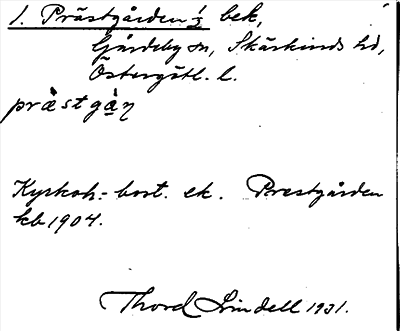 1. Prästgården 1/2 bek,
Gårdeby sn, Skärkinds hd,
Östergötl. l.
præ̀stgà̱ɳ
Kyrkoh:-bost. ek. Prestgården
kb 1904.
Thord Lindell 1931.